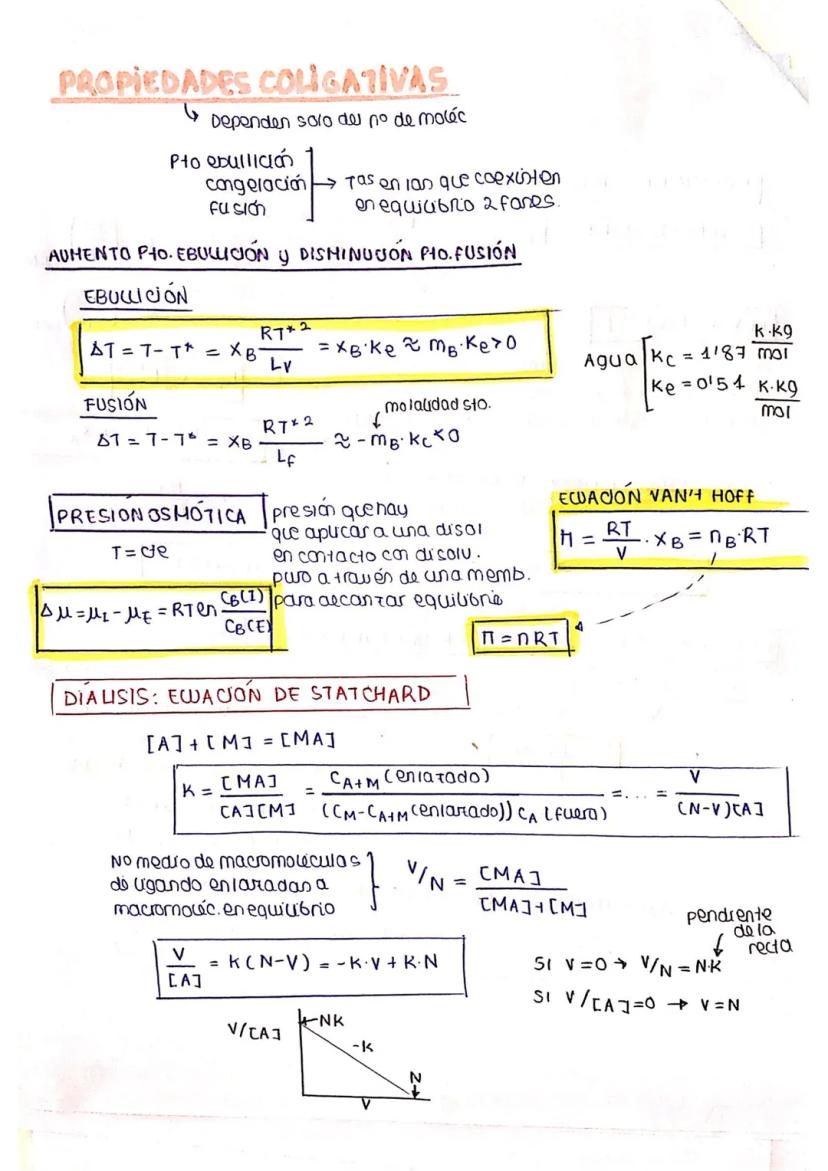 PROPIEDADES COLIGATIVAS
↳ Dependen solo del nº de moléc
Pto ebullición
congelación → Tas en las que coexisten
fusión en equilibrio 2 fases.
AUMENTO Pto. EBULLICIÓN y DISMINUCIÓN Pto. FUSIÓN
EBULLICIÓN
ΔT = T - T* = xB RT*²/Lv = xB·Ke ≈ mB·Ke > 0
Agua [Kc = 1'87 K·Kg/mol
Ke = 0'51 K·Kg/mol
FUSIÓN
molalidad sto.
ΔT = T - T* = xB RT*²/Lf ≈ - mB·Kc < 0
PRESIÓN OSMÓTICA
T = cte
presión que hay
que aplicar a una disol
en contacto con disolu.
puro a través de una memb.
para alcanzar equilibrio
Δμ = μI - μE = RT ln CB(I)/CB(E)
ECUACIÓN VAN'T HOFF
Π = RT/V · xB = nB·RT
Π = nRT
DIÁLISIS: ECUACIÓN DE STATCHARD
[A] + [M] = [MA]
K = [MA]/[A][M] = CA+M (enlazado)/((CM - CA+M (enlazado)) CA (fuera)) = ... = V/(N-V)[A]
No medio de macromoléculas
de ligando enlazadas a
macromoléc. en equilibrio
V/N = [MA]/[MA]+[M]
V/[A] = K(N-V) = -K·V + K·N
pendiente
de la
recta
SI V=0 → V/N = N·K
SI V/[A]=0 → V=N
V/[A]
NK
-K
N
V